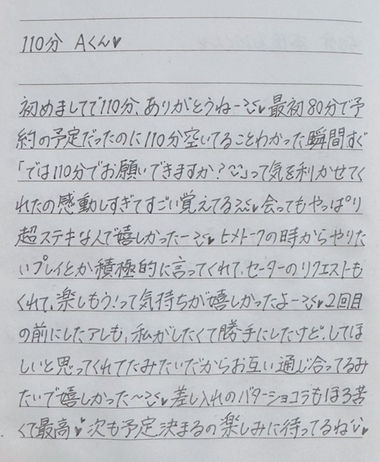 110分 Aくん♥
初めましてで110分、ありがとうねー♥最初80分で予
約の予定だったのに110分空いてることわかった瞬間すぐ
「では110分でお願いできますか?」って気を利かせてく
れたの感動しすぎてすごい覚えてる♥会ってもやっぱり
超ステキな人で嬉しかったー♥ヒメトークの時からやりた
いプレイとか積極的に言ってくれて、セーターのリクエストも
くれて、楽しもう!って気持ちが嬉しかったよー♥2回目
の前にしたアレも、私がしたくて勝手にしたけど、してほ
しいと思ってくれてたみたいだからお互い通じ合ってるみ
たいで嬉しかった〜♥差し入れのバターショコラもほろ苦
くて最高♥次も予定決まるの楽しみに待ってるね♥